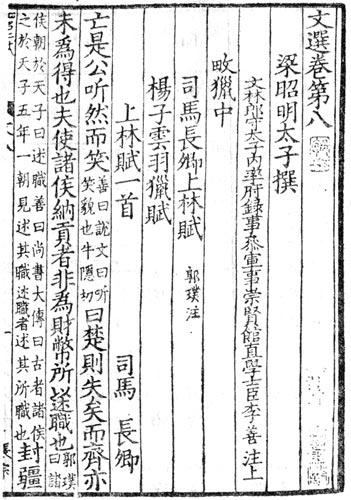 文選卷第八
梁昭明太子撰
文林郎守太子內率府錄事叅軍事崇賢館直學士臣李善注上
畋獵中
司馬長卿上林賦 郭璞注
楊子雲羽獵賦
上林賦一首 司馬長卿
亡是公听然而笑 善曰說文曰听笑貌也牛隱切 曰楚則失矣而齊亦
未為得也夫使諸侯納貢者非為財幣所以述職也 郭璞曰諸
侯朝於天子曰述職善曰尚書大傳曰古者諸侯
之於天子五年一朝見述其職述職者述其所職也 封疆